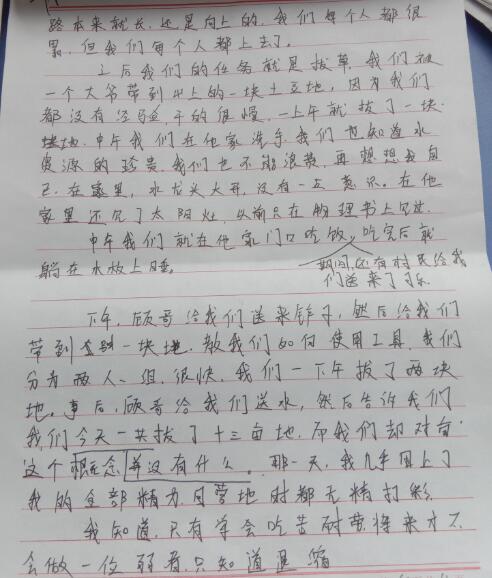 路本来就长，还是向上的，我们每个人都很
累，但我们每个人都上去了。
之后我们的任务就是拔草，我们被
一个大爷带到山上的一块土豆地，因为我们
都没有经验，干的很慢，一上午就拔了一块
地，中午我们在他家洗手，我们也知道水
资源的珍贵，我们也不能浪费，再想想我自
己，在家里，水龙头大开，没有一点意识。在他
家里还见了太阳灶，以前只在物理书上见过。
中午我们就在他家门口吃饭，吃完后就
躺在水板上睡。
期间，还有村民给我
们送来了瓜
下午，顾哥给我们送来铲子，然后给我们
带到另一块地，教我们如何使用工具，我们
分为两人一组，很快，我们一下午拔了两块
地。事后，顾哥给我们送水，然后告诉我们
我们今天一共拔了十三亩地，而我们却对亩
这个概念并没有什么。那一天，我几乎用上了
我的全部精力，回营地时都无精打彩
我知道，只有学会吃苦耐劳，将来才不
会做一位弱者，只知道退缩